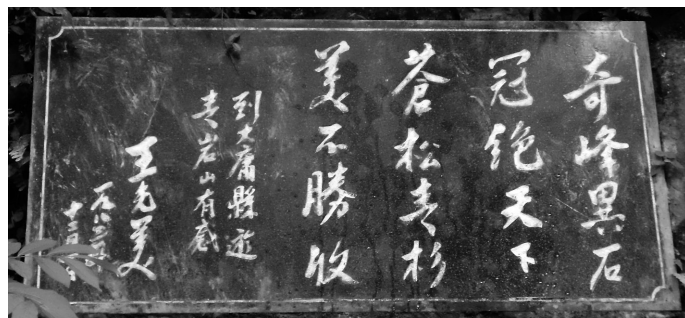 奇峰異石
冠絕天下
蒼松青杉
美不勝收
到大庸縣遊
青岩山有感
王光美
一九八三年
十二月